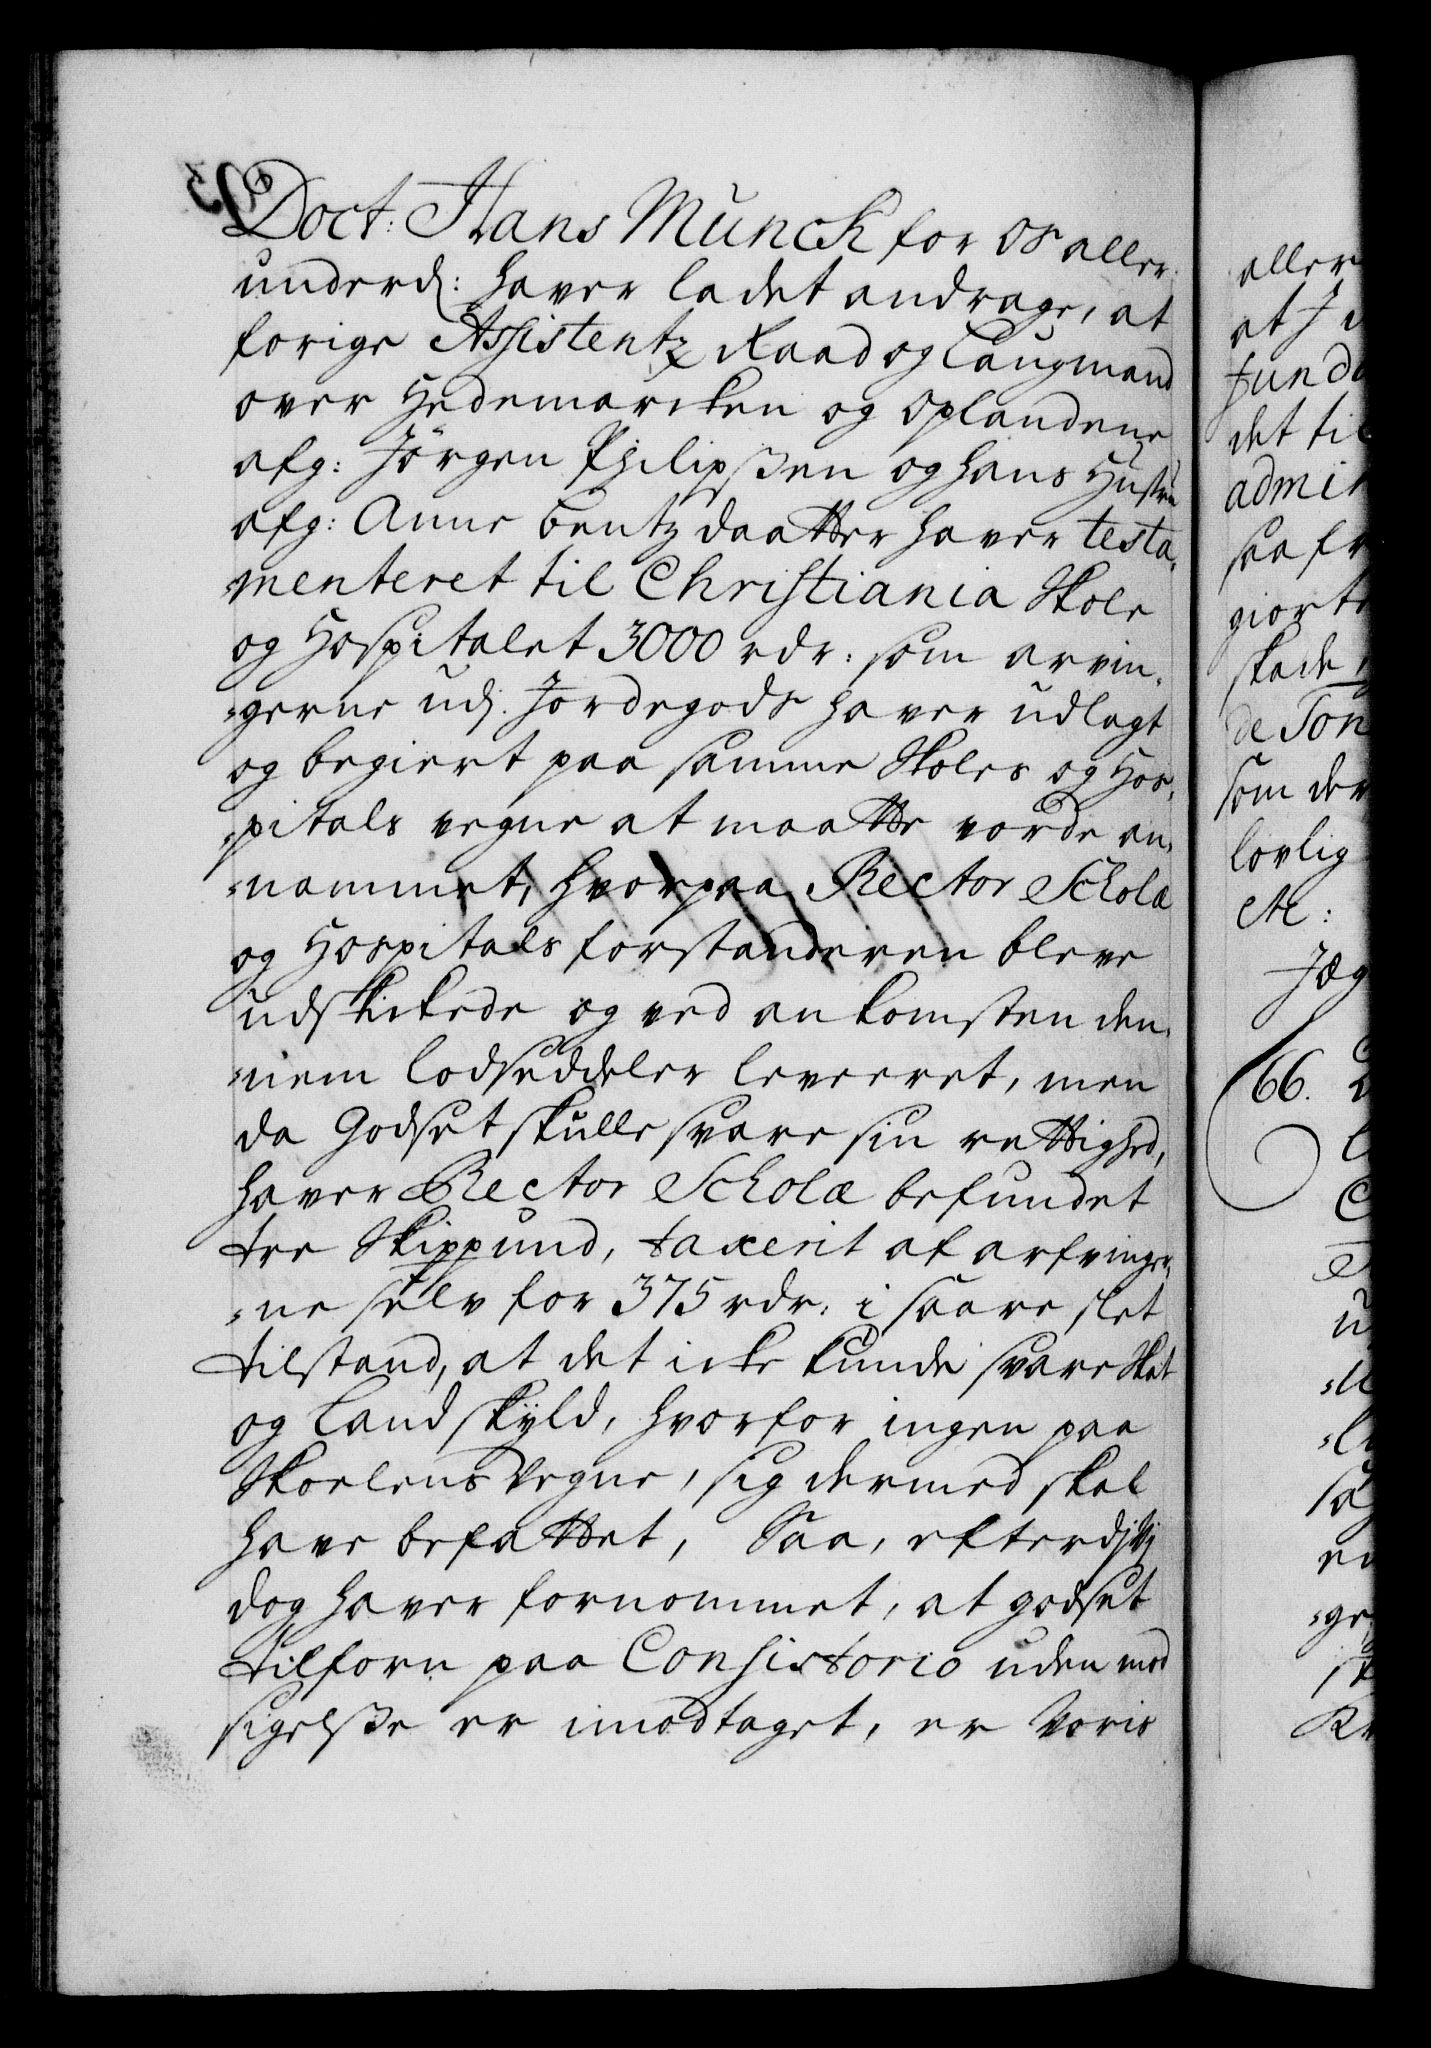 Doct: Hans Munck for os aller:
underd: haver ladet andrage, at
forige Assistentz Raad og Laugmand
over Hedemarcken og Oplandene
afg: Jörgen Philipßen og hans Hustru
afg: Anne Bentz daatter haver testa„
„menteret til Christiania Skole
og Hospitalet 3000 rdr: som arvin„
„gerne udj. Jordegods haver udlagt
og begiert paa samme Skoles og Hos„
„pitals vegne at maatte vorde an„
„nammet, hvorpaa Rector Scholæ
og Hospitals forstanderen bleve
udskickede og ved ankomsten den„
„nem lodseddeler leveret, men
da Godset skulle svare sin rettighed,
haver Rector Scholæ befundet
tre Skippund, taxerit af arfvinger„
„ne selv for 375 rdr: i saare slet
tilstand, at det icke kunde svare Skat
og Landskyld, hvorfor ingen paa
Skoelens Vegne, sig dermed skal
have befattet, Saa, efterdj Vj
dog haver fornommet, at godset
tilforn paa Consistorio uden mod
sigelße er imodtaget, er Voris
aller
at J
funda
det til
admin
saa fr
giort
skade
de Ton
som der
lovlig
etc:
Jæg
66.